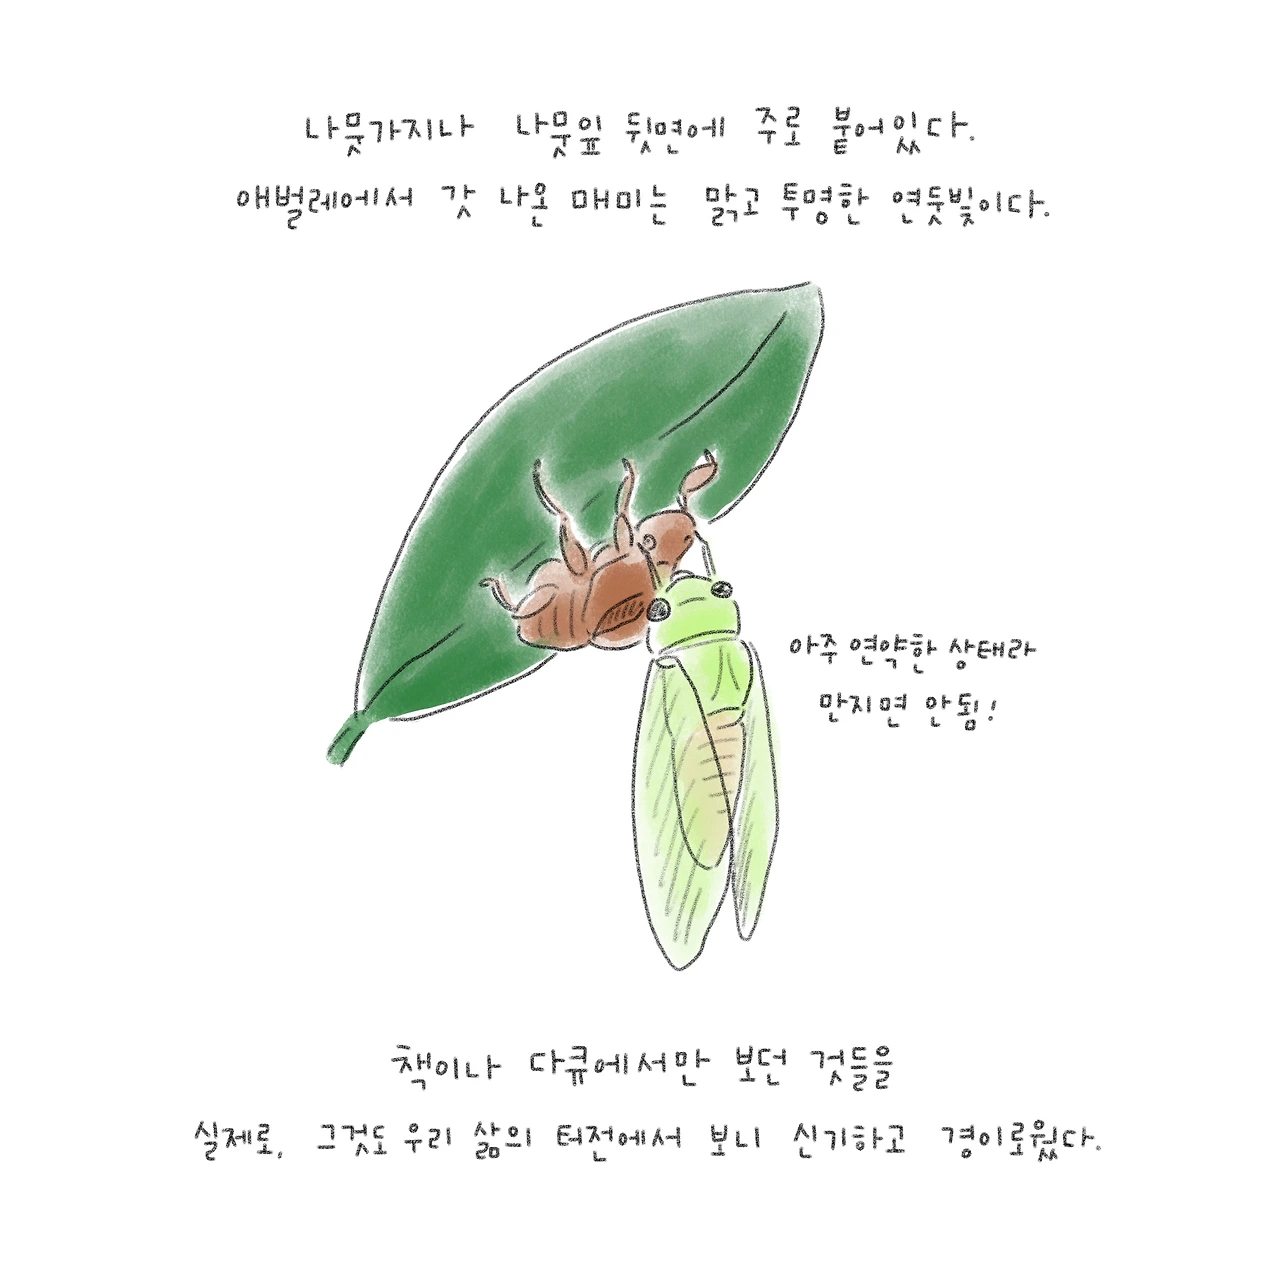 나뭇가지나 나뭇잎 뒷면에 주로 붙어있다.
애벌레에서 갓 나온 매미는 맑고 투명한 연둣빛이다.
아주 연약한 상태라
만지면 안됨!
책이나 다큐에서만 보던 것들을
실제로, 그것도 우리 삶의 터전에서 보니 신기하고 경이로웠다.